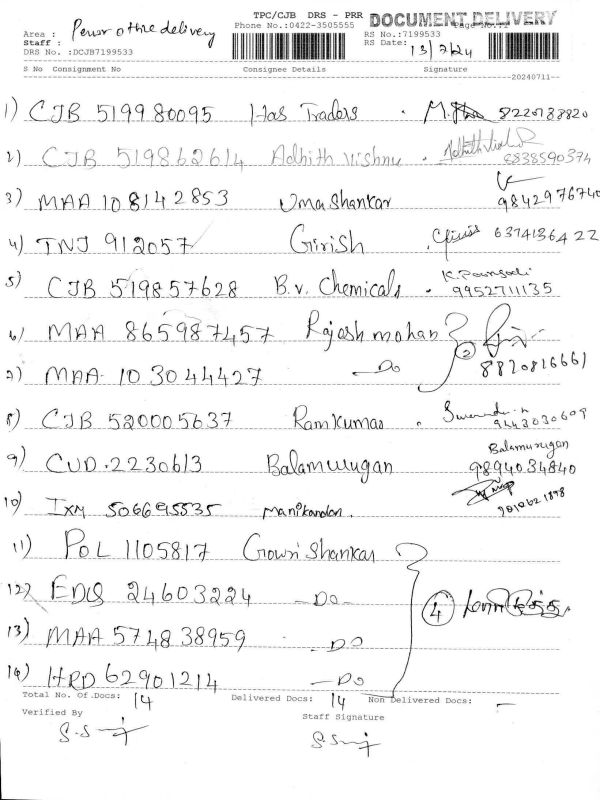 TPC/CJB DRS - PRR DOCUMENT DELIVERY
Area : Peusr othre delivery Phone No.:0422-3505555 RS No.:7199533
Staff : RS Date: 13/7/24
DRS No. :DCJB7199533
S No Consignment No Consignee Details Signature
20240711
1) CJB 519980095 Has Traders . 8220133820
2) CJB 519862614 Adhith Vishnu . Adhith Vishnu 6838590374
3) MAA 108142853 Uma Shankar 9842976740
4) TNJ 912057 Girish . 6374136422
5) CJB 519857628 B.V. Chemicals . 9952711135
6) MAA 865987457 Rajash mohan
7) MAA 103044427 —Do (2) 8820816661
8) CJB 520005637 Ramkumar . 9443030609
9) CUD.2230613 Balamurugan Balamurugan 9894034840
10) IXM 506695535 Manikandan.
11) POL 1105817 Gowri Shankar
12) EDQ 24603224 —DO— (4)
13) MAA 574838959 —DO
14) HRD 62901214 —DO
Total No. Of.Docs: 14 Delivered Docs: 14 Non Delivered Docs: —
Verified By Staff Signature